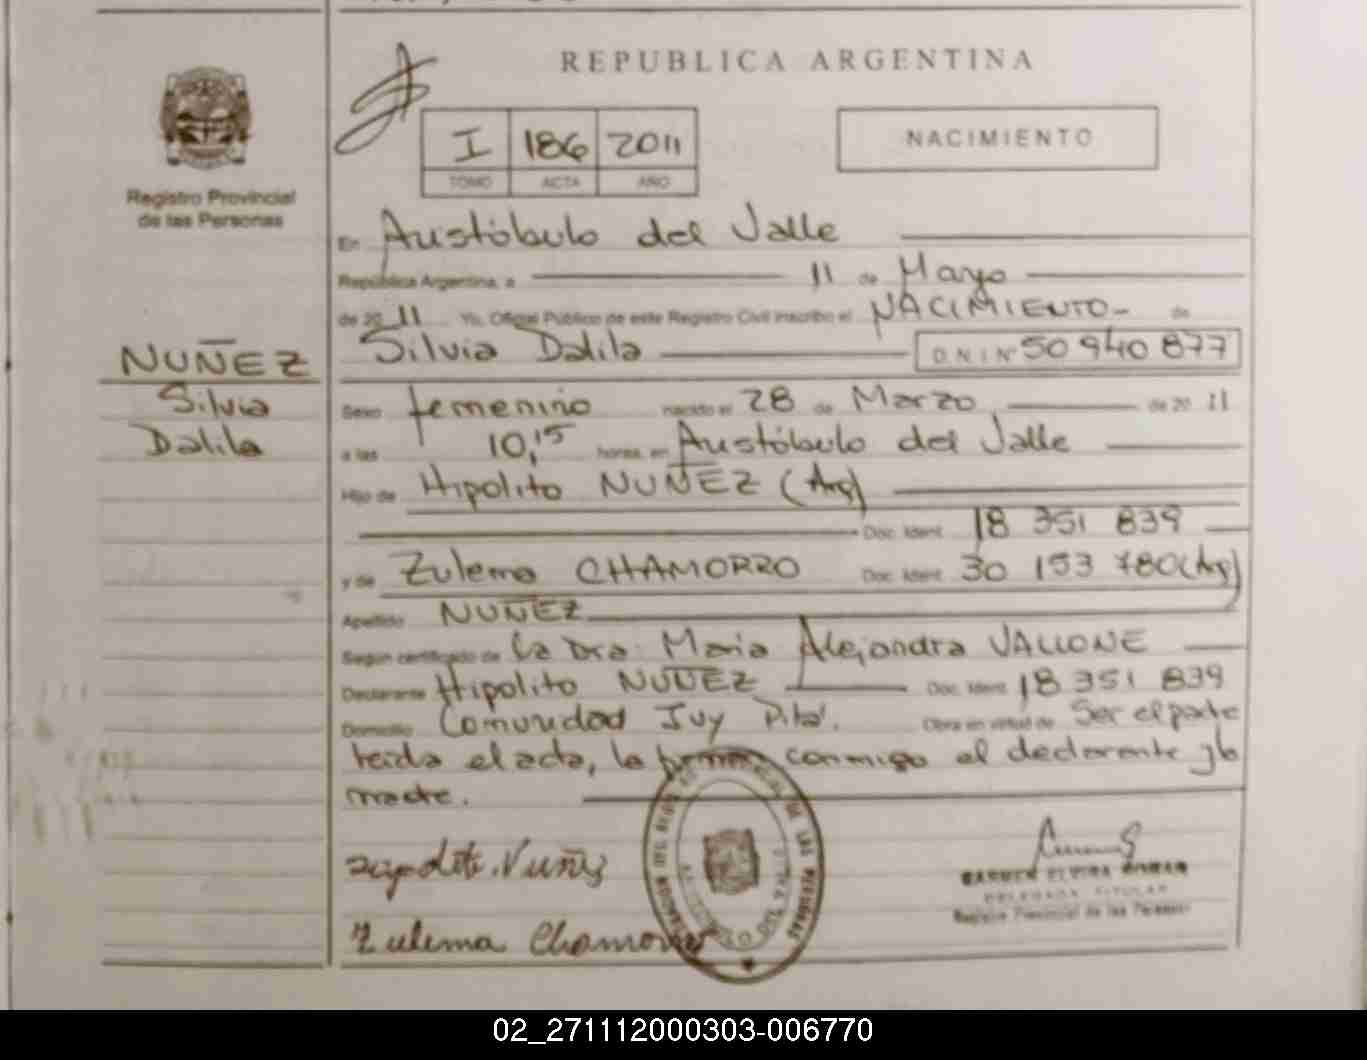 REPUBLICA ARGENTINA
I 186 2011
TOMO ACTA AÑO
NACIMIENTO
Registro Provincial
de las Personas
En Aristóbulo del Valle
República Argentina, a 11 de Mayo
de 20 11 Yo, Oficial Público de este Registro Civil inscribo el NACIMIENTO- de
Silvia Dalila D.N.I Nº 50 940 877
NUÑEZ
Silvia
Dalila
Sexo femenino nacido el 28 de Marzo de 20 11
a las 10,15 horas, en Aristóbulo del Valle
Hijo de Hipolito NUÑEZ (Arg)
Doc. Ident. 18 351 839
y de Zulema CHAMORRO Doc. Ident. 30 153 780 (Arg)
Apellido NUÑEZ
Según certificado de la Dra. Maria Alejandra VALLONE
Declarante Hipolito NUÑEZ Doc. Ident. 18 351 839
Domicilio Comunidad Ivy Pitá. Obra en virtud de Ser el padre
leida el acta, la firman conmigo el declarante y la
madre.
Nuñez
Zulema Chamorro
CARMEN ELVIRA
DELEGADA TITULAR
Registro Provincial de las Personas
02_271112000303-006770